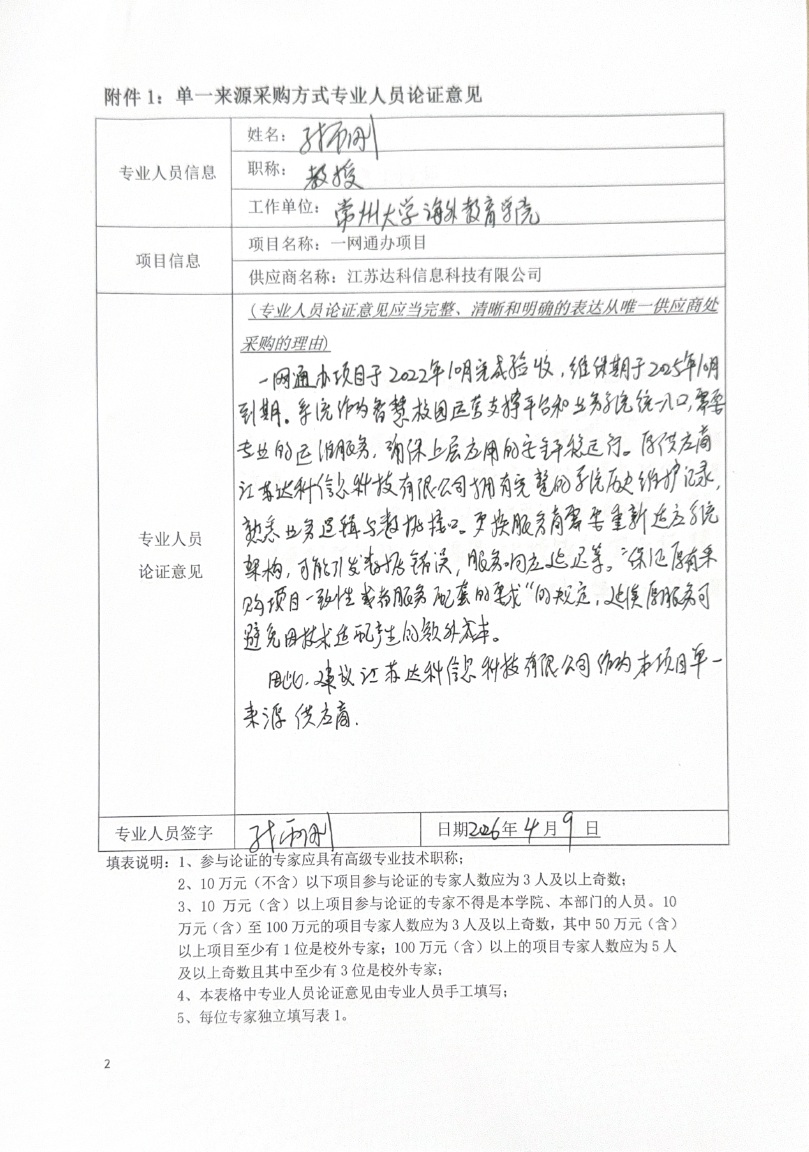 附件 1：单一来源采购方式专业人员论证意见
专业人员信息
姓名：
职称：教授
工作单位：常州大学海外教育学院
项目信息
项目名称：一网通办项目
供应商名称：江苏达科信息科技有限公司
专业人员
论证意见
(专业人员论证意见应当完整、清晰和明确的表达从唯一供应商处
采购的理由)
一网通办项目于2022年10月完成验收，维保期于2025年10月
到期。系统作为智慧校园运营支撑平台和业务系统统一入口，需要
专业的运维服务，确保上层应用的安全平稳运行。原供应商
江苏达科信息科技有限公司拥有完整的系统历史维护记录，
熟悉业务逻辑与数据接口。更换服务商需要重新适应系统
架构，可能引发数据错误，服务响应延迟等。“保证原有采
购项目一致性或者服务配套的要求”的规定，延续原服务可
避免因技术适配产生的额外成本。
因此，建议江苏达科信息科技有限公司作为本项目单一
来源供应商.
专业人员签字
日期2026年4月9日
填表说明：1、参与论证的专家应具有高级专业技术职称；
2、10万元（不含）以下项目参与论证的专家人数应为3人及以上奇数；
3、10 万元（含）以上项目参与论证的专家不得是本学院、本部门的人员。10
万元（含）至100万元的项目专家人数应为3人及以上奇数，其中50万元（含）
以上项目至少有1位是校外专家；100万元（含）以上的项目专家人数应为5人
及以上奇数且其中至少有3位是校外专家；
4、本表格中专业人员论证意见由专业人员手工填写；
5、每位专家独立填写表1。
2